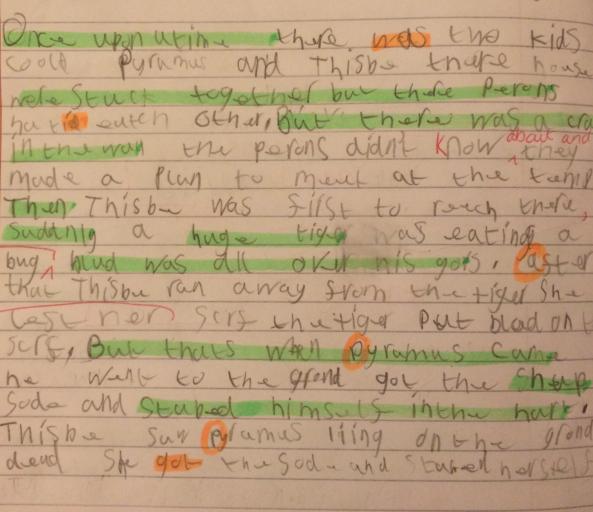 Once upon utime there was two kids
coold Pyramus and Thisbe there house
were stuck together but there Perons
hatid eutch other, But there was a cra
in the wall the perons didn't know about and they
made a plan to meut at the temp
Then Thisbe was first to reach there,
Suddnly a huge tiger was eating a
bug blud was all over his gors. after
that Thisbe ran away from the tiger She
Left her Scrf the tiger Put blad on t
Scrf, But thats when Pyramus came
he went to the grond got the Sharp
Sode and Stubed himself in the hart.
Thisbe Saw pyramus liing on the grond
dead She got the Sode and Stubed herself